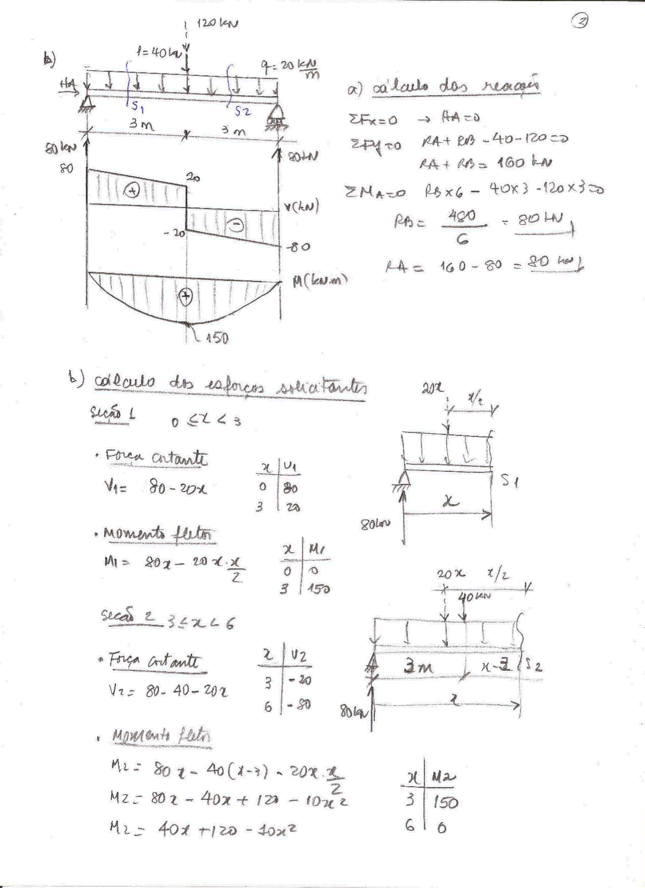 2
120 kN
b)
f=40kN
q=20 kN/m
HA
S1
S2
3 m
3 m
80 kN
80 kN
80
20
V(kN)
-20
-80
M(kN.m)
150
a) Cálculo das reações
ΣFx=0 → HA=0
ΣFy=0 RA+RB-40-120=0
RA+RB=160 kN
ΣMA=0 RB×6-40×3-120×3=0
RB= 480/6 = 80 kN
RA= 160-80 = 80 kN
b) Cálculo dos esforços solicitantes
Seção 1 0≤x<3
• Força cortante
V1= 80-20x
x V1
0 80
3 20
• Momento fletor
M1= 80x-20x.x/2
x M1
0 0
3 150
20x
x/2
S1
x
80 kN
Seção 2 3≤x<6
• Força cortante
V2= 80-40-20x
x V2
3 -20
6 -80
20x x/2
40 kN
3m
x-3
S2
x
80 kN
• Momento fletor
M2= 80x-40(x-3)-20x.x/2
M2= 80x-40x+120-10x²
M2= 40x+120-10x²
x M2
3 150
6 0